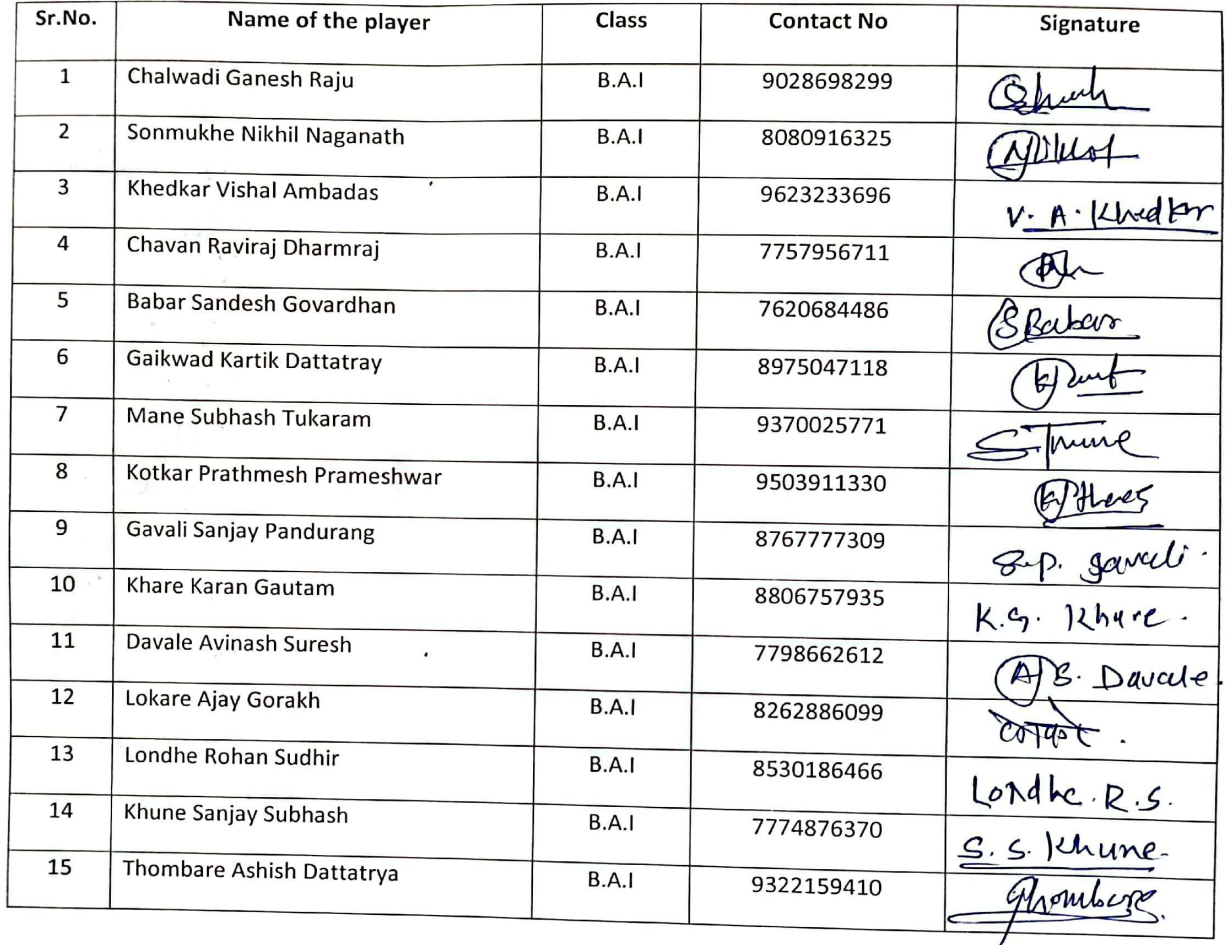 Sr.No. Name of the player Class Contact No Signature
1 Chalwadi Ganesh Raju B.A.I 9028698299
2 Sonmukhe Nikhil Naganath B.A.I 8080916325
3 Khedkar Vishal Ambadas B.A.I 9623233696 V. A. Khedkar
4 Chavan Raviraj Dharmraj B.A.I 7757956711
5 Babar Sandesh Govardhan B.A.I 7620684486 S Babar
6 Gaikwad Kartik Dattatray B.A.I 8975047118
7 Mane Subhash Tukaram B.A.I 9370025771
8 Kotkar Prathmesh Prameshwar B.A.I 9503911330
9 Gavali Sanjay Pandurang B.A.I 8767777309 S.p. gavali.
10 Khare Karan Gautam B.A.I 8806757935 K.G. Khare.
11 Davale Avinash Suresh B.A.I 7798662612 A S. Davale.
12 Lokare Ajay Gorakh B.A.I 8262886099
13 Londhe Rohan Sudhir B.A.I 8530186466 Londhe. R.S.
14 Khune Sanjay Subhash B.A.I 7774876370 S. S. Khune.
15 Thombare Ashish Dattatrya B.A.I 9322159410